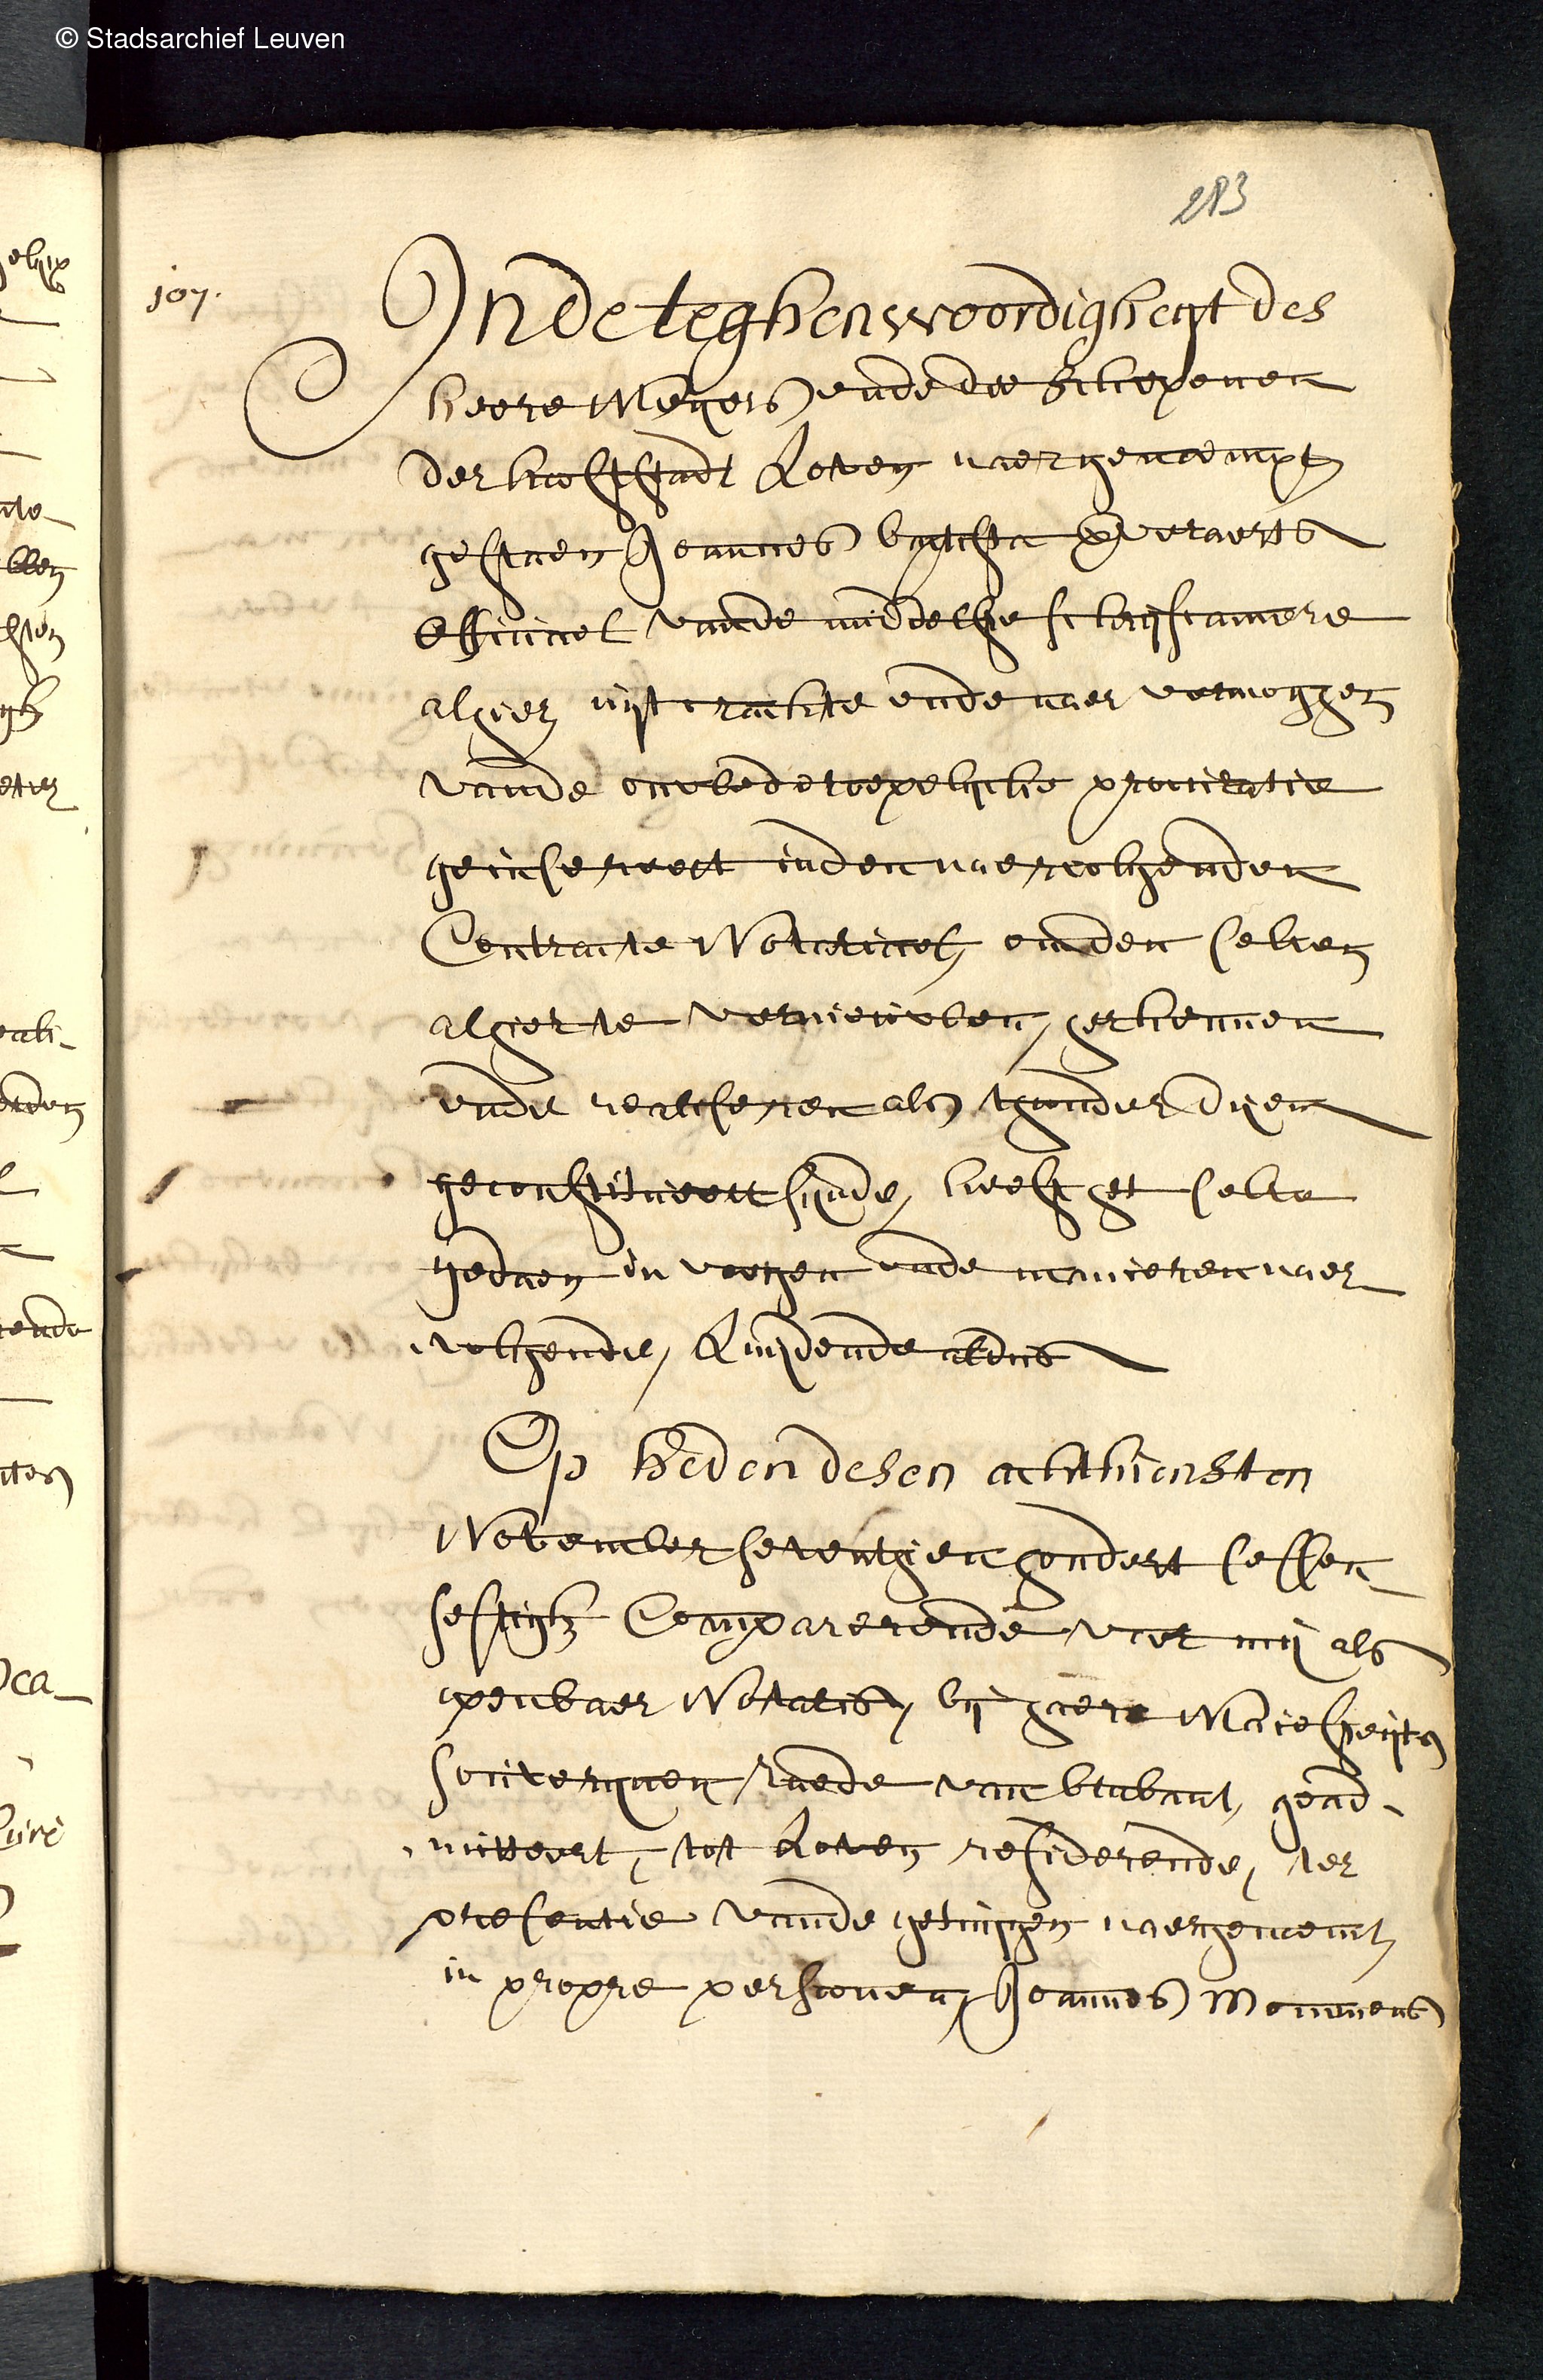 © Stadsarchief Leuven
283
107.
In de teghenwoordigheyt des
heere Meyers ende die Schepenen
der hooftstadt Loven naergenoempt
gestaen Joannes baptista Everaerts
Officiael vande middelste schryfcamere
alhier uyt crachte ende naer vermoghen
vande onwederroepelycke procuratie
geinsereert inden naervolgenden
Contracte Notariael, om den selven
alhier te vernieuwen, herkennen
ende realiseren als thunder dyen
geconstitueert synde, heeft het selve
gedaen in voegen ende manieren naer
volgende, Luydende aldus
Op heden desen achthiensten
November seventhien hondert sessen
sestigh Comparerende voor my als
openbaer Notaris, by haere Majesteyts
souverynen raede van brabant, gead-
mitteert, tot Loven residerende, ter
presentie vande getuygen naergenoemt,
in propre persoonen, Joannes Mommens